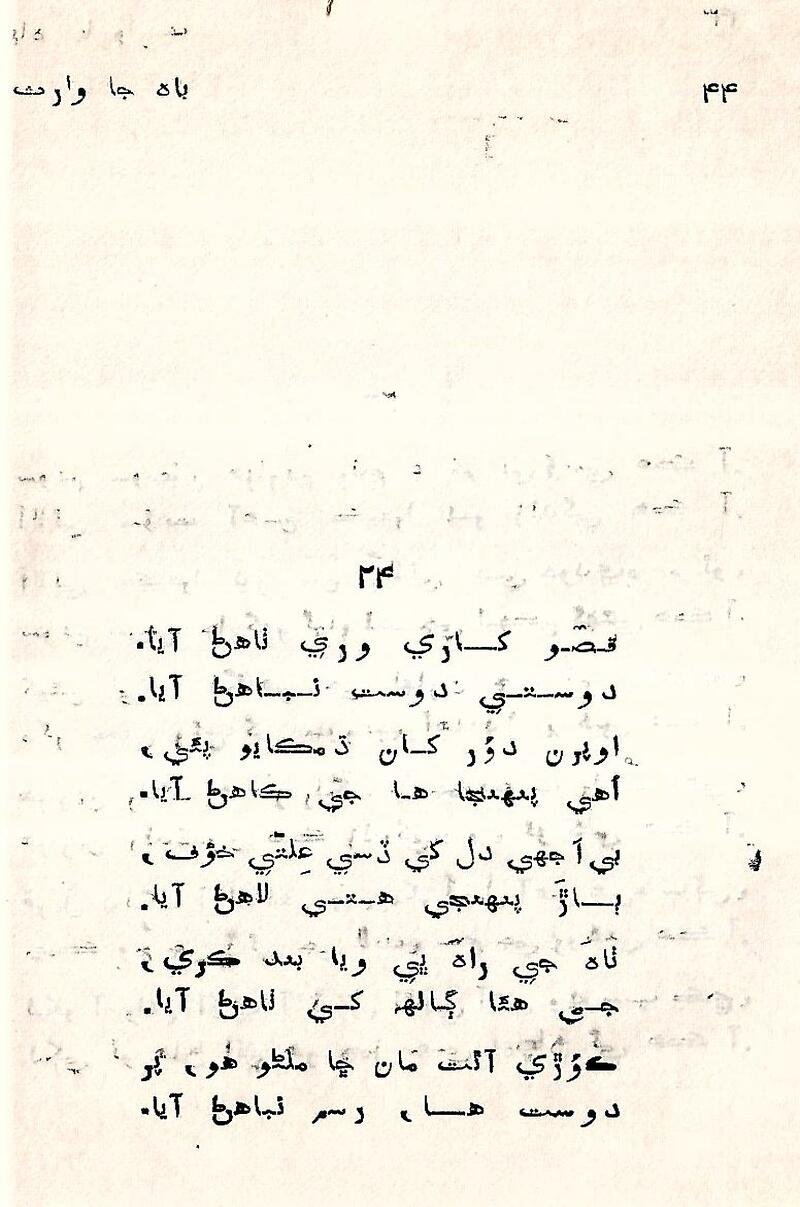 ۴۴
باه جا وارث
۲۴
قصّو کاري وري ٺاهڻ آيا.
دوستي دوست نباهڻ آيا.
اوپرن دؤر کان ڌمڪايو پئي،
اُهي پنهنجا ها جي ڪاهڻ آيا.
بي اَجهي دل کي ڏسي عِلتّي خوُف،
ٻاڙَ پنهنجي هتي لاهڻ آيا.
ٺاهَ جي راهَ ئي ويا بند ڪري،
جي هئا ڳالهہ کي ٺاهڻ آيا.
ڪوُڙي آٿت مان ڇا ملڻو هو، پر
دوست ها، رسم نباهڻ آيا.